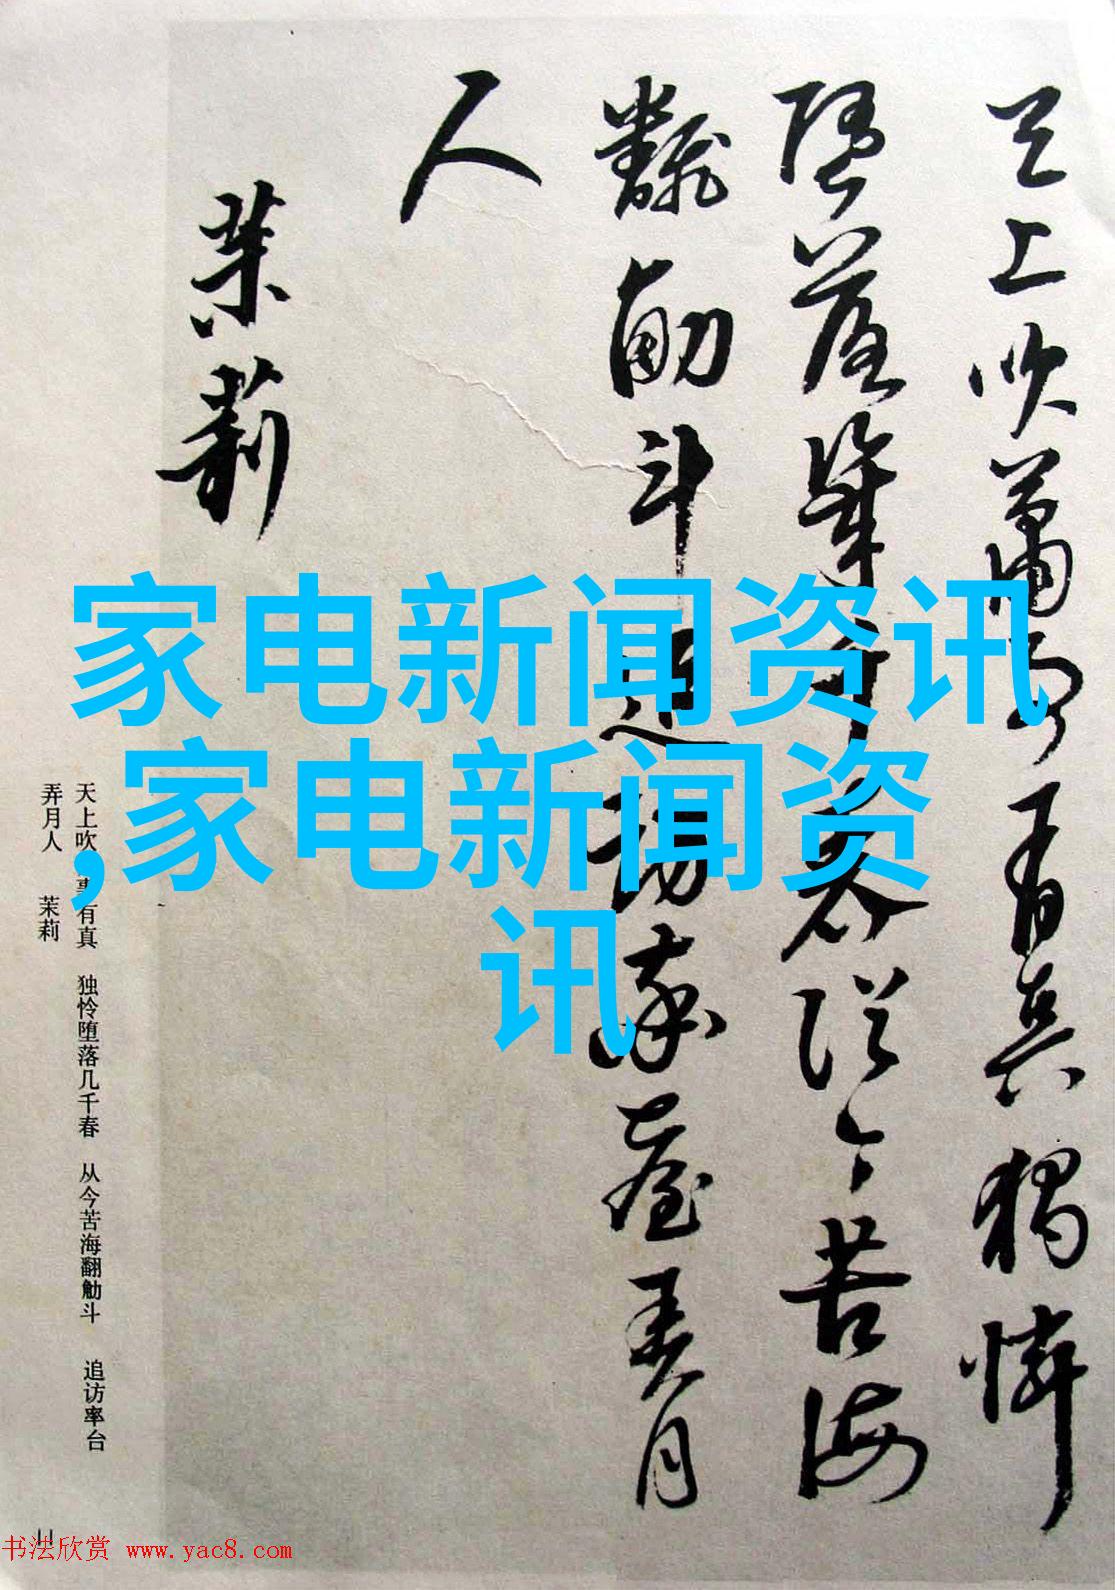 天上吹蕭事有真獨憐
墮落幾千春從今苦海
飜觔斗追訪率臺弄月
人
茉莉
家电新闻资讯
,家电新闻资
讯
天上吹 事有真 独怜堕落几千春 从今苦海翻觔斗 追访率台
弄月人 茉莉
11
书法欣赏 www.yac8.com